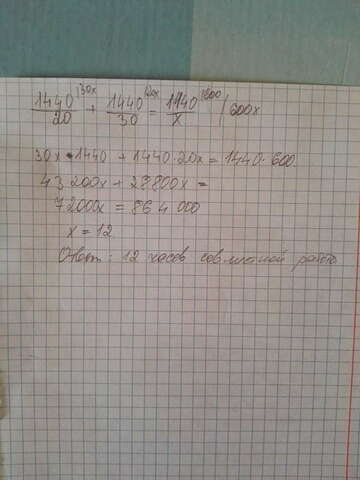 1440/20 |30x + 1440/30 |20x = 1440/x |600 | 600x
30x · 1440 + 1440 · 20x = 1440 · 600.
43200x + 28800x =
72000x = 864000
x = 12.
Ответ: 12 часов совместной работы